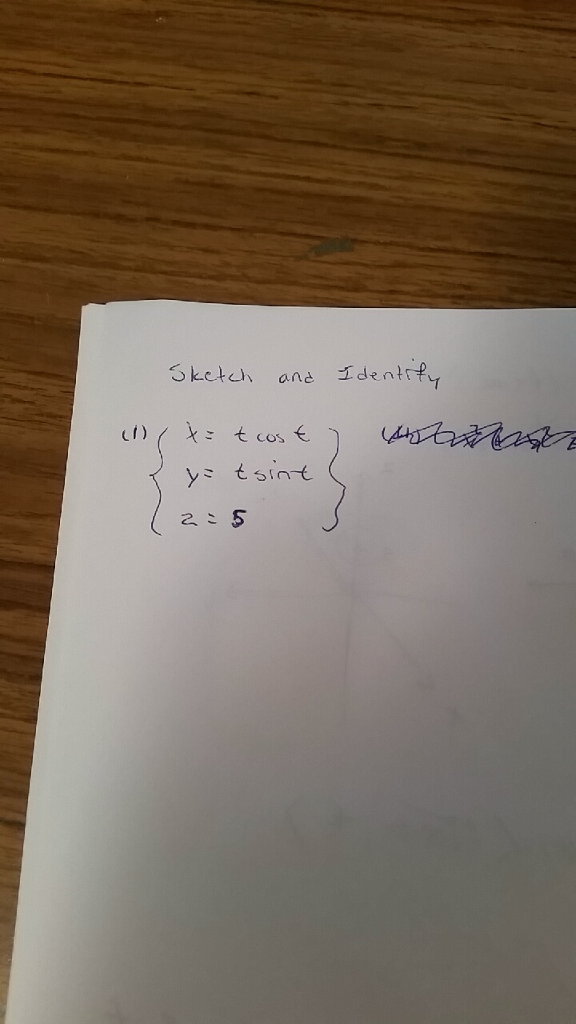 Sketch and Identify
(1) { x = t cos t }
y = t sin t
z = 5